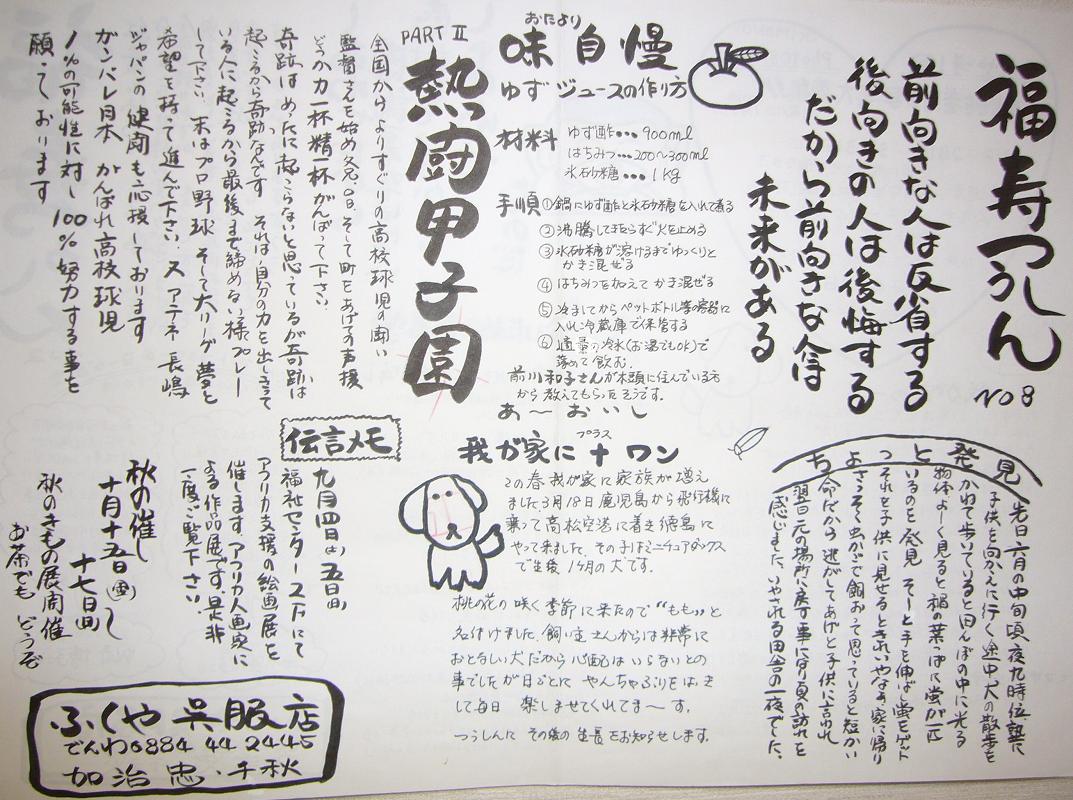 福寿つうしん
No8
前向きな人は反省する
後向きの人は後悔する
だから前向きな人は
未来がある
おたより
味自慢
ゆずジュースの作り方
材料
ゆず酢・・・900ml
はちみつ・・・200〜300ml
氷砂糖・・・1kg
手順
①鍋にゆず酢と氷砂糖を入れて煮る
②沸騰してきたらすぐ火を止める
③氷砂糖が溶けるまでゆっくりと
かき混ぜる
④はちみつを加えてかき混ぜる
⑤冷ましてからペットボトル等の容器に
入れ冷蔵庫で保管する
⑥適量の冷水(お湯でもOK)で
薄めて飲む。
前川和子さんが木頭に住んでいる方
から教えてもらったそうです。
あ〜おいし
PART II
熱闘甲子園
全国からよりすぐりの高校球児の闘い
監督さんを始め各自、そして町をあげての声援
どうか力一杯精一杯がんばって下さい
奇跡はめったに起こらないと思っているが奇跡は
起こるから奇跡なんです それは自分の力を出しきって
いる人に起こるから最後まで諦めない様プレー
して下さい。末はプロ野球 そして大リーグ 夢と
希望を持って進んで下さい。又アテネ 長嶋
ジャパンの健闘も応援しております
ガンバレ日本 がんばれ高校球児
1%の可能性に対し100%努力する事を
願っております
ちょっと発見
先日六月の中旬頃夜九時位塾に
子供を向かえに行く途中、犬の散歩を
かねて歩いていると田んぼの中に光る
物体よーく見ると稲の葉っぱに蛍が一匹
いるのを発見 そーと手を伸ばし蛍をゲット
それを子供に見せるときれいやなあ家に帰り
さっそく虫かごで飼おって思っていると短かい
命だから逃がしてあげと子供に言われ
翌日元の場所に戻す事に 夏の訪れを
感じました、いやされる田舎の一夜でした。
我が家に+ワン
プラス
この春我が家に家族が増え
ました3月18日鹿児島から飛行機に
乗って高松空港に着き徳島に
やって来ました。その子はミニチュアダックス
で生後1ヶ月の犬です。
桃の花の咲く季節に来たので“もも”と
名付けました。飼い主さんからは非常に
おとなしい犬だから心配はいらないとの
事でしたが日ごとにやんちゃぶりをはっき
して毎日 楽しませてくれてま〜す。
つうしんにその後の生長をお知らせします。
伝言メモ
九月四日(土)五日(日)
福祉センター 二Fにて
アフリカ支援の絵画展を
催します、アフリカ人画家に
よる作品展です。是非
一度ご覧下さい。
秋の催し
十月十五日(金)〜
十七日(日)
秋のきもの展同時開催
お茶でもどうぞ
ふくや呉服店
でんわ0884 44 2445
加治 忠・千秋